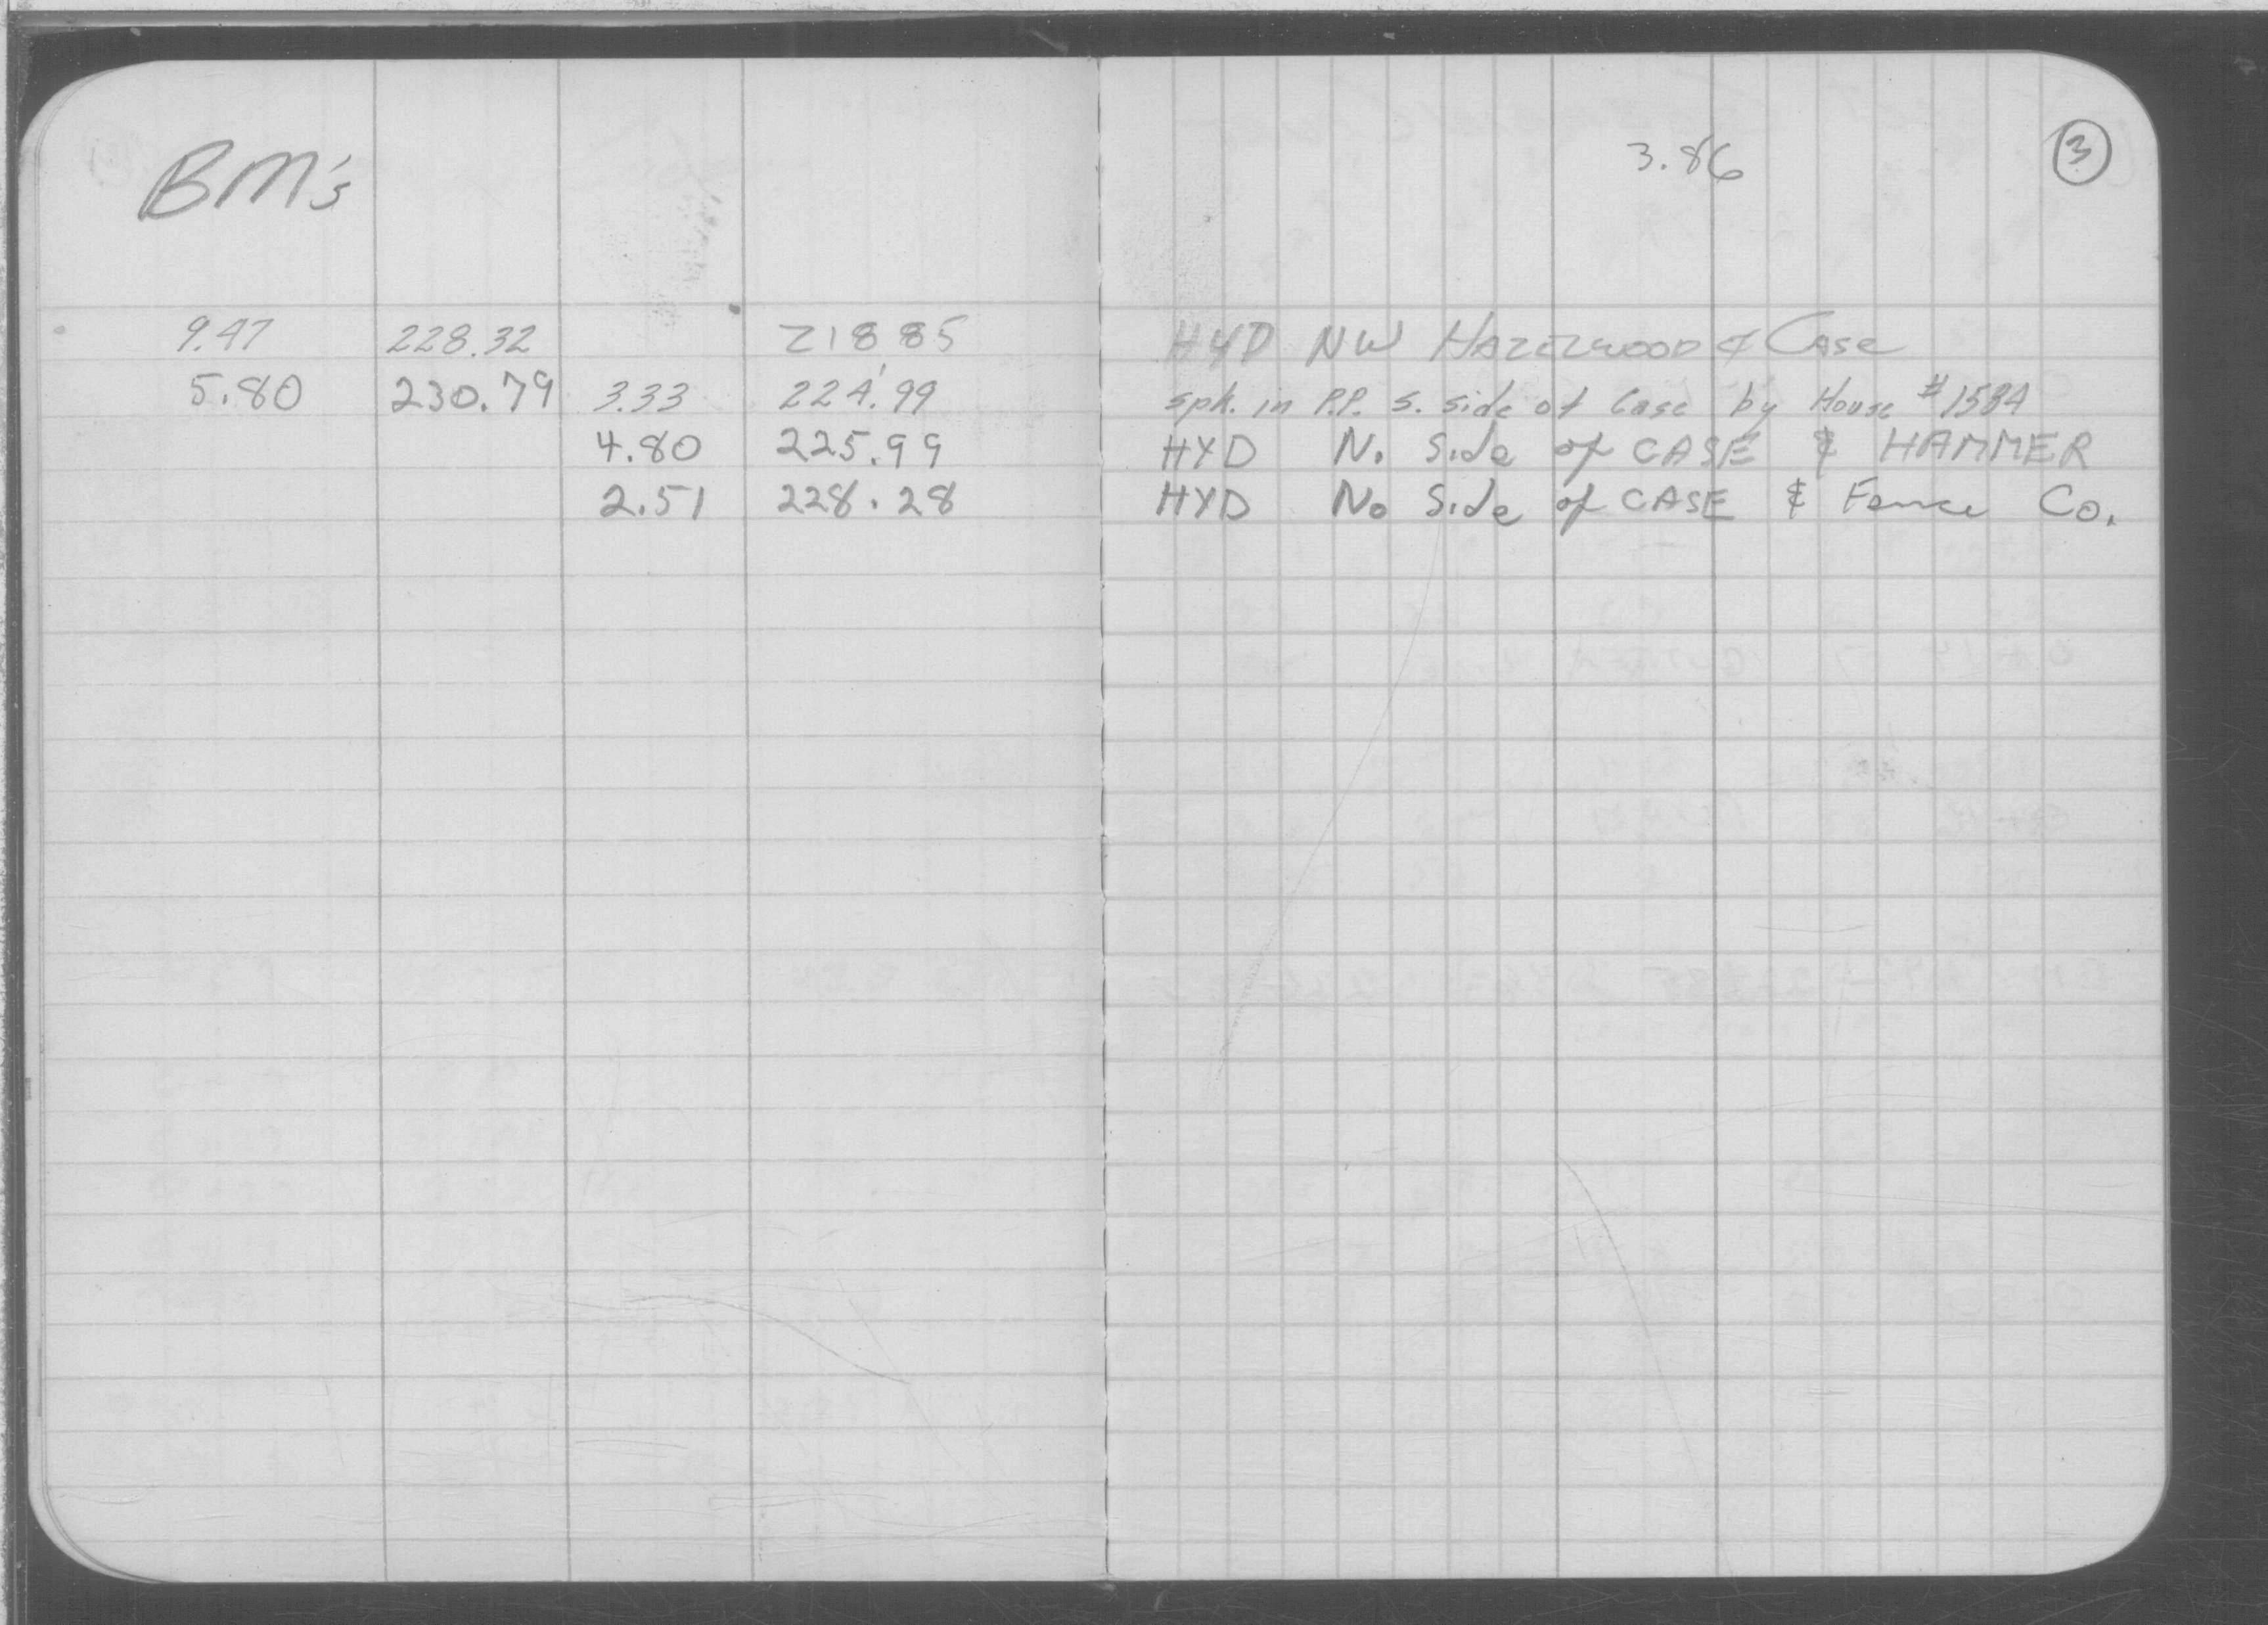 BM's
3.86
3
9.47 228.32 218 85 HYD NW Hazelwood & Case
5.80 230.79 3.33 224.99 spk. in P.P. S. side of Case by House #1584
4.80 225.99 HYD N. Side of CASE & HAMMER
2.51 228.28 HYD No Side of CASE & Fence Co.